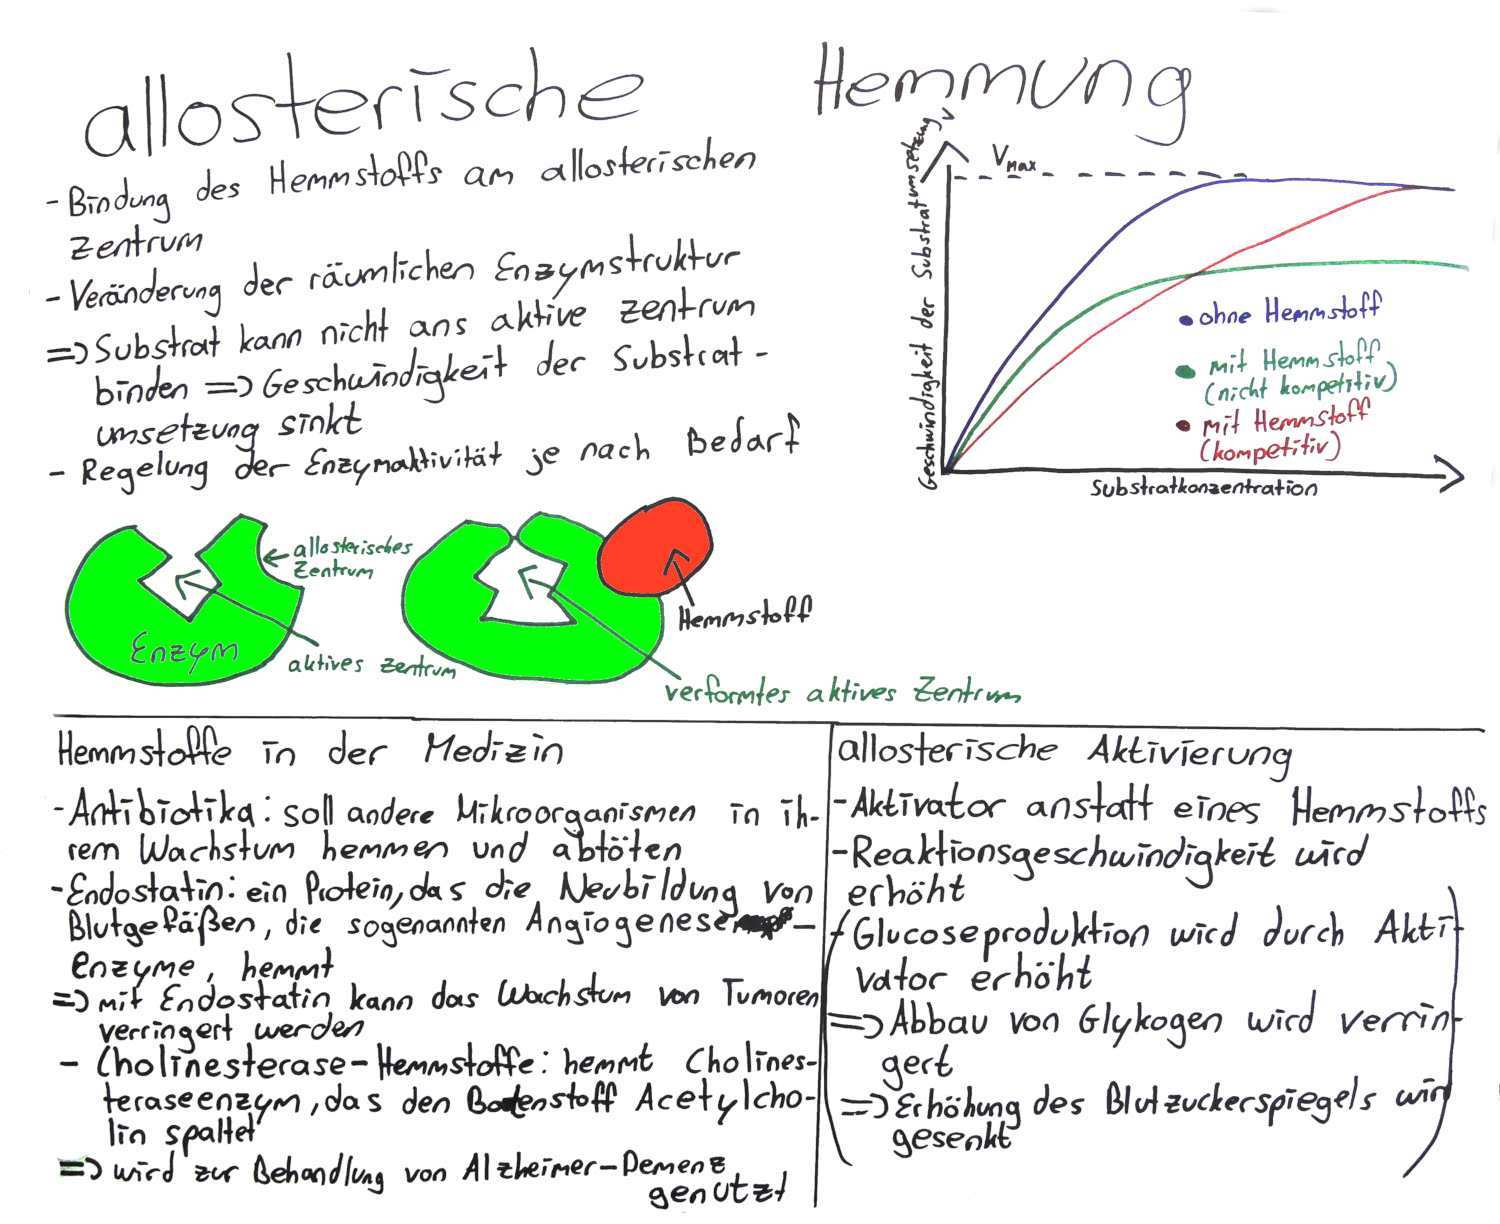 allosterische Hemmung
- Bindung des Hemmstoffs am allosterischen
Zentrum
- Veränderung der räumlichen Enzymstruktur
=> Substrat kann nicht ans aktive Zentrum
binden => Geschwindigkeit der Substrat-
umsetzung sinkt
- Regelung der Enzymaktivität je nach Bedarf
Geschwindigkeit der Substratumsetzung v
Vmax
• ohne Hemmstoff
• mit Hemmstoff
(nicht kompetitiv)
• mit Hemmstoff
(kompetitiv)
Substratkonzentration
allosterisches
Zentrum
Enzym
aktives Zentrum
Hemmstoff
verformtes aktives Zentrum
Hemmstoffe in der Medizin
- Antibiotika: soll andere Mikroorganismen in ih-
rem Wachstum hemmen und abtöten
- Endostatin: ein Protein, das die Neubildung von
Blutgefäßen, die sogenannten Angiogenese-
enzyme, hemmt
=> mit Endostatin kann das Wachstum von Tumoren
verringert werden
- Cholinesterase-Hemmstoffe: hemmt Cholines-
teraseenzym, das den Botenstoff Acetylcho-
lin spaltet
=> wird zur Behandlung von Alzheimer-Demenz
genutzt
allosterische Aktivierung
- Aktivator anstatt eines Hemmstoffs
- Reaktionsgeschwindigkeit wird
erhöht
(- Glucoseproduktion wird durch Akti-
vator erhöht
=> Abbau von Glykogen wird verrin-
gert
=> Erhöhung des Blutzuckerspiegels wird
gesenkt)